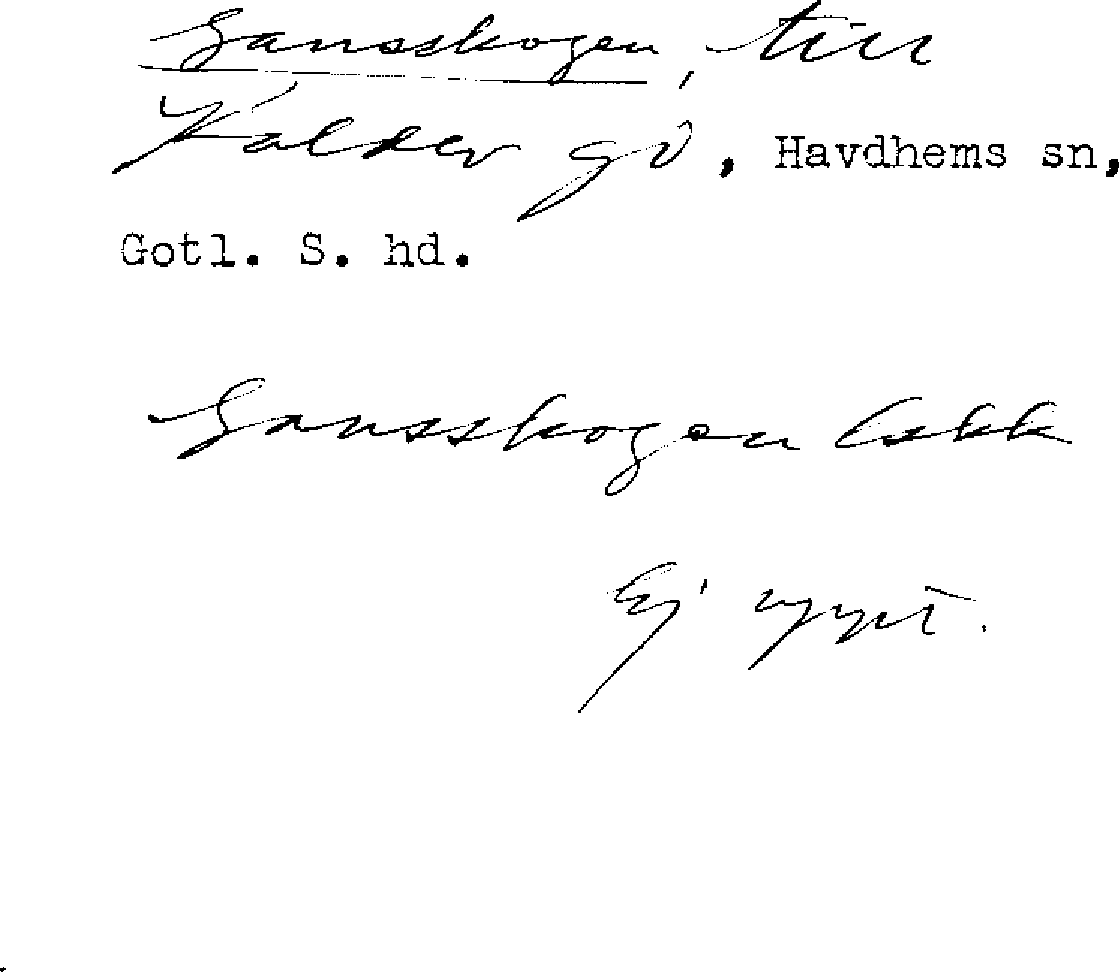 Gansskogen, till
Kalder gd, Havdhems sn,
Gotl. S. hd.
Gansskogen
Ej uppt.